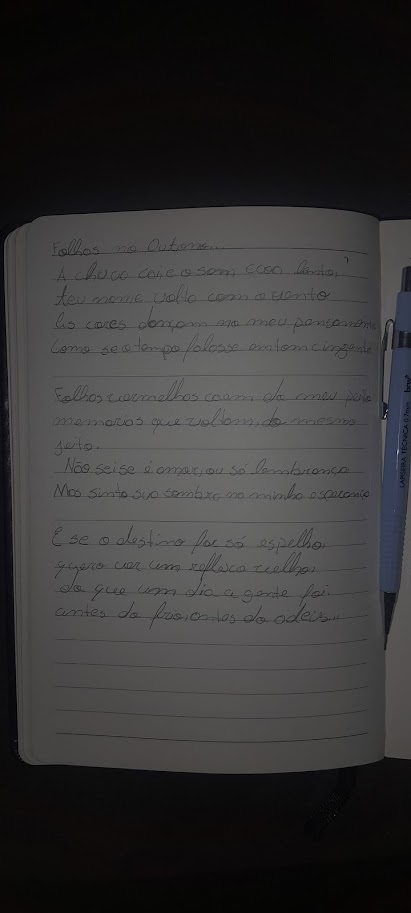 Folhas no Outono...
A chuva cai e o som ecoa lento,
teu nome volta com o vento
As cores dançam no meu pensamento
Como se o tempo falasse em tom cinzento
Folhas vermelhas caem do meu peito
memorias que voltam, do mesmo
jeito.
Não sei se é amor, ou só lembrança
Mas sinto sua sombra na minha esperança
E se o destino for só espelho,
quero ver um reflexo velho,
do que um dia a gente foi
antes do frio, antes do adeus...